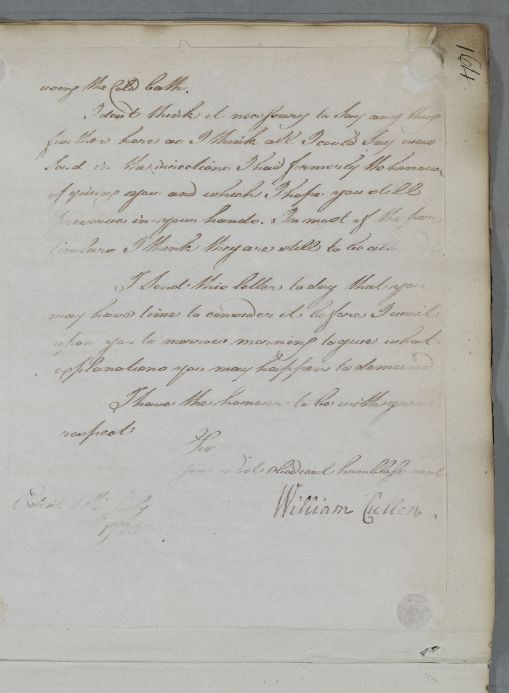 164
using the Cold bath.
I dont think it necessary to say any thing
further here as I think all I could say was
said in the directions I had formerly the honour
of giving you and which I hope you still
preserve in your hands. In most of the par
ticulars I think they are still to be
I send this letter to day that you
may have time to consider it before I wait
upon you to morrow morning to give what
explanations you may happen to demand
I have the honour to be with great
respect
Sir
your most obedient humble servant
William Cullen.